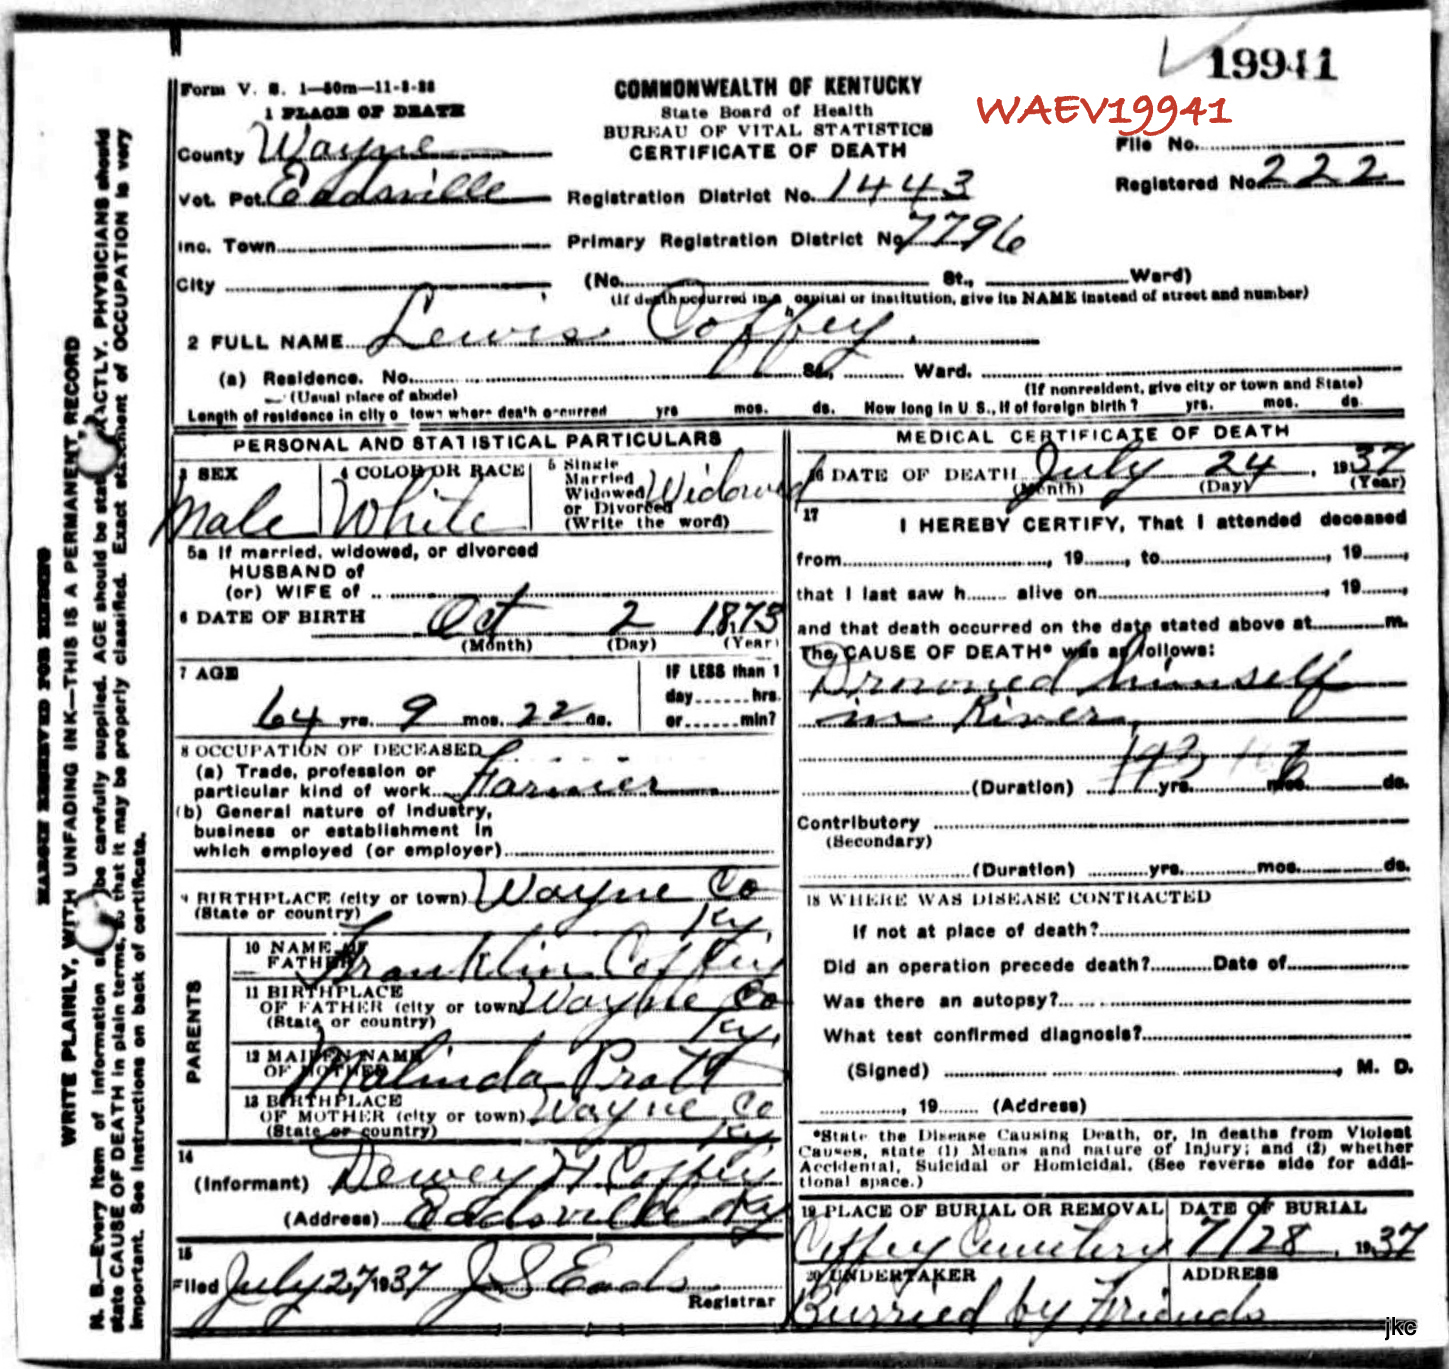 19941
Form V. S. 1—50m—11-3-28
COMMONWEALTH OF KENTUCKY
State Board of Health
BUREAU OF VITAL STATISTICS
CERTIFICATE OF DEATH
WAEV19941
1 PLACE OF DEATH
County Wayne
File No.
Vot. Pct. Eadsville
Registration District No. 1443
Registered No. 222
Inc. Town
Primary Registration District No. 7796
City
(No. St., Ward)
(If death occurred in a hospital or institution, give its NAME instead of street and number)
2 FULL NAME Lewis Coffey
(a) Residence. No. St., Ward.
(Usual place of abode)
(If nonresident, give city or town and State)
Length of residence in city o town where death occurred yrs mos. ds. How long in U. S., if of foreign birth? yrs. mos. ds.
PERSONAL AND STATISTICAL PARTICULARS
3 SEX
Male
4 COLOR OR RACE
White
5 Single
Married
Widowed
or Divorced
(Write the word)
Widowed
5a If married, widowed, or divorced
HUSBAND of
(or) WIFE of
6 DATE OF BIRTH Oct 2 1873
(Month) (Day) (Year)
7 AGE
64 yrs. 9 mos. 22 ds.
IF LESS than 1
day hrs.
or min?
8 OCCUPATION OF DECEASED
(a) Trade, profession or
particular kind of work Farmer
(b) General nature of industry,
business or establishment in
which employed (or employer)
9 BIRTHPLACE (city or town) Wayne Co
(State or country) Ky.
PARENTS
10 NAME OF
FATHER Franklin Coffey
11 BIRTHPLACE
OF FATHER (city or town) Wayne Co
(State or country) Ky.
12 MAIDEN NAME
OF MOTHER Malinda Pratt
13 BIRTHPLACE
OF MOTHER (city or town) Wayne Co
(State or country) Ky
14
(Informant) Dewey H Coffey
(Address) Eadsville Ky
15
Filed July 27 1937 J S Eads
Registrar
MEDICAL CERTIFICATE OF DEATH
16 DATE OF DEATH July 24, 1937
(Month) (Day) (Year)
17
I HEREBY CERTIFY, That I attended deceased
from , 19 , to , 19 ,
that I last saw h alive on , 19 ,
and that death occurred on the date stated above at m.
The CAUSE OF DEATH* was as follows:
Drowned himself
in River
(Duration) yrs. mos. ds.
Contributory
(Secondary)
(Duration) yrs. mos. ds.
18 WHERE WAS DISEASE CONTRACTED
If not at place of death?
Did an operation precede death? Date of
Was there an autopsy?
What test confirmed diagnosis?
(Signed) , M. D.
, 19 (Address)
*State the Disease Causing Death, or, in deaths from Violent
Causes, state (1) Means and nature of Injury; and (2) whether
Accidental, Suicidal or Homicidal. (See reverse side for addi-
tional space.)
19 PLACE OF BURIAL OR REMOVAL
Coffey Cemetery
DATE OF BURIAL
7/28, 1937
20 UNDERTAKER
ADDRESS
Burried by Friends
MARGIN RESERVED FOR BINDING
WRITE PLAINLY, WITH UNFADING INK—THIS IS A PERMANENT RECORD
N. B.—Every item of information should be carefully supplied. AGE should be stated EXACTLY. PHYSICIANS should
state CAUSE OF DEATH in plain terms, so that it may be properly classified. Exact statement of OCCUPATION is very
important. See instructions on back of certificate.
jkc